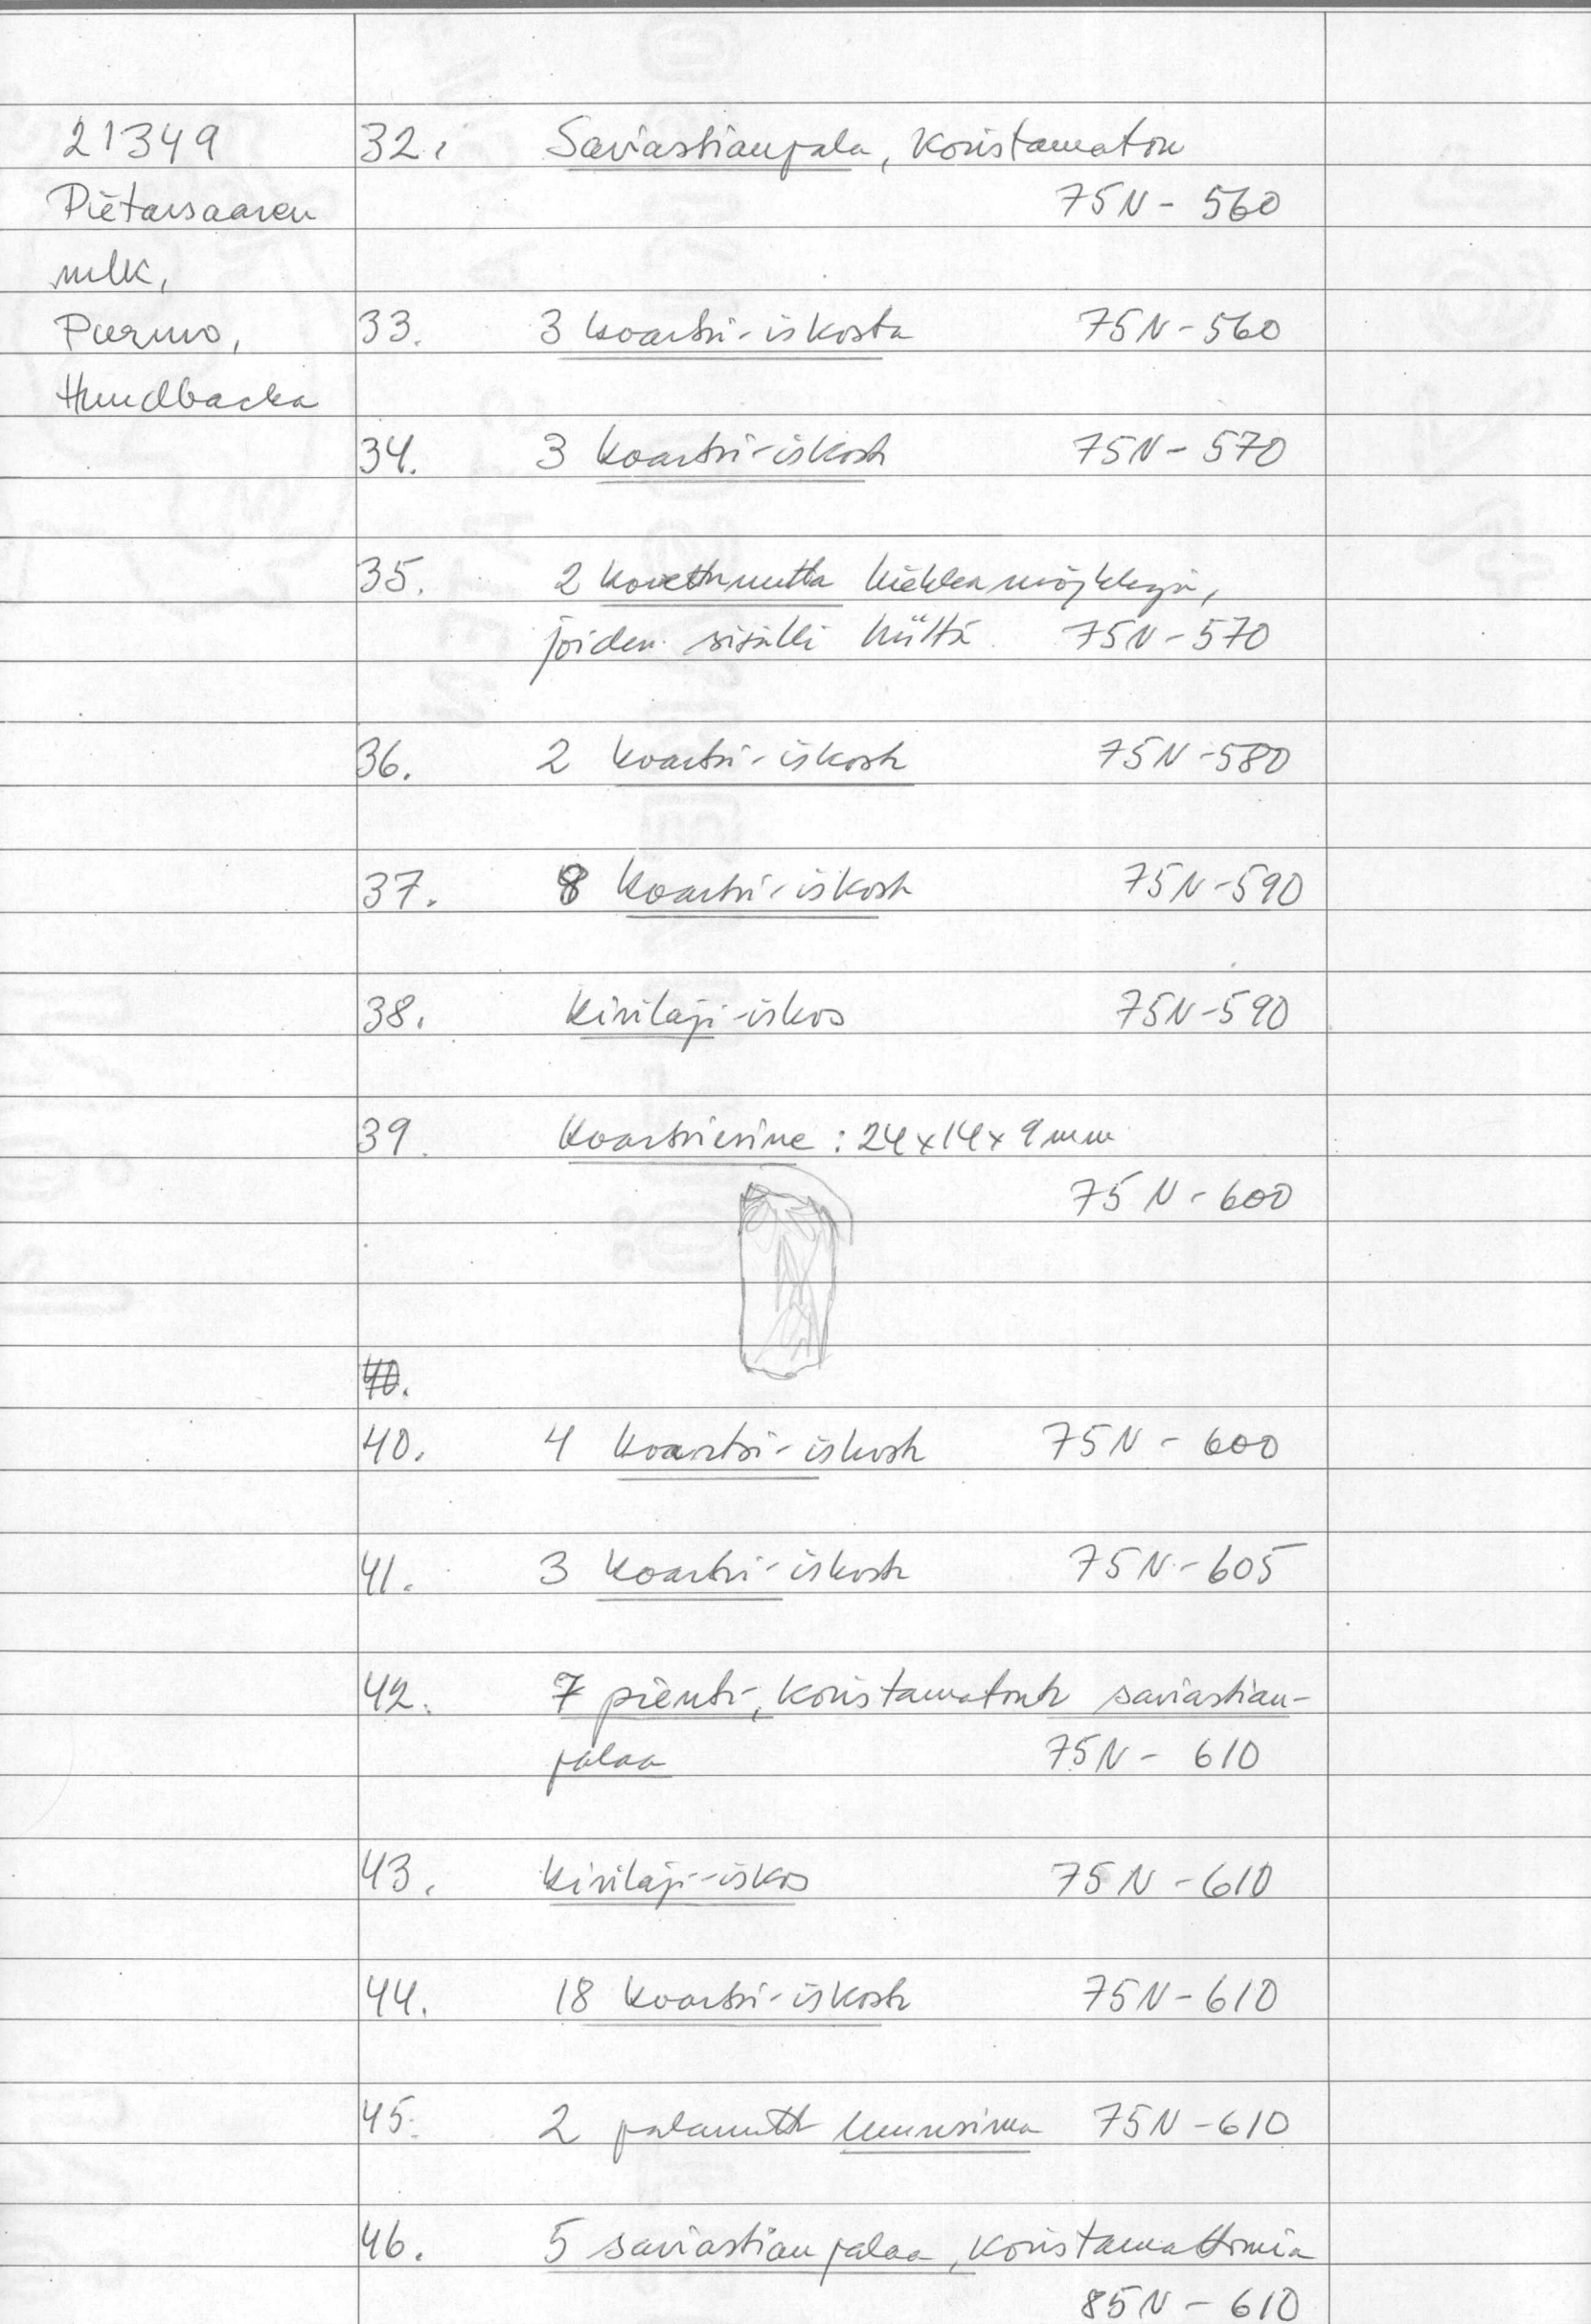 21349
Pietarsaaren
mlk,
Purmo,
Hundbacka
32. Saviastianpala, koristamaton
75N - 560
33. 3 kvartsi-iskosta 75N-560
34. 3 kvartsi-iskosta 75N-570
35. 2 kovettunutta hiekkamöykkyä,
joiden sisällä hiiltä 75N-570
36. 2 kvartsi-iskosta 75N-580
37. 8 kvartsi-iskosta 75N-590
38. Kivilaji-iskos 75N-590
39. Kvartsiesine : 24x14x9mm
75N-600
40.
40. 4 kvartsi-iskosta 75N - 600
41. 3 kvartsi-iskosta 75N-605
42. 7 pientä, koristamatonta saviastian-
palaa 75N - 610
43. Kivilaji-iskos 75N-610
44. 18 kvartsi-iskosta 75N-610
45. 2 palanutta luunsirua 75N-610
46. 5 saviastianpalaa, koristamattomia
85N - 610